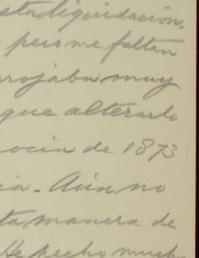 esta liquidación.
pero me faltan
arrojaba muy
que alterarlo
de 1873
Aún no
ta manera de
He hecho mucho